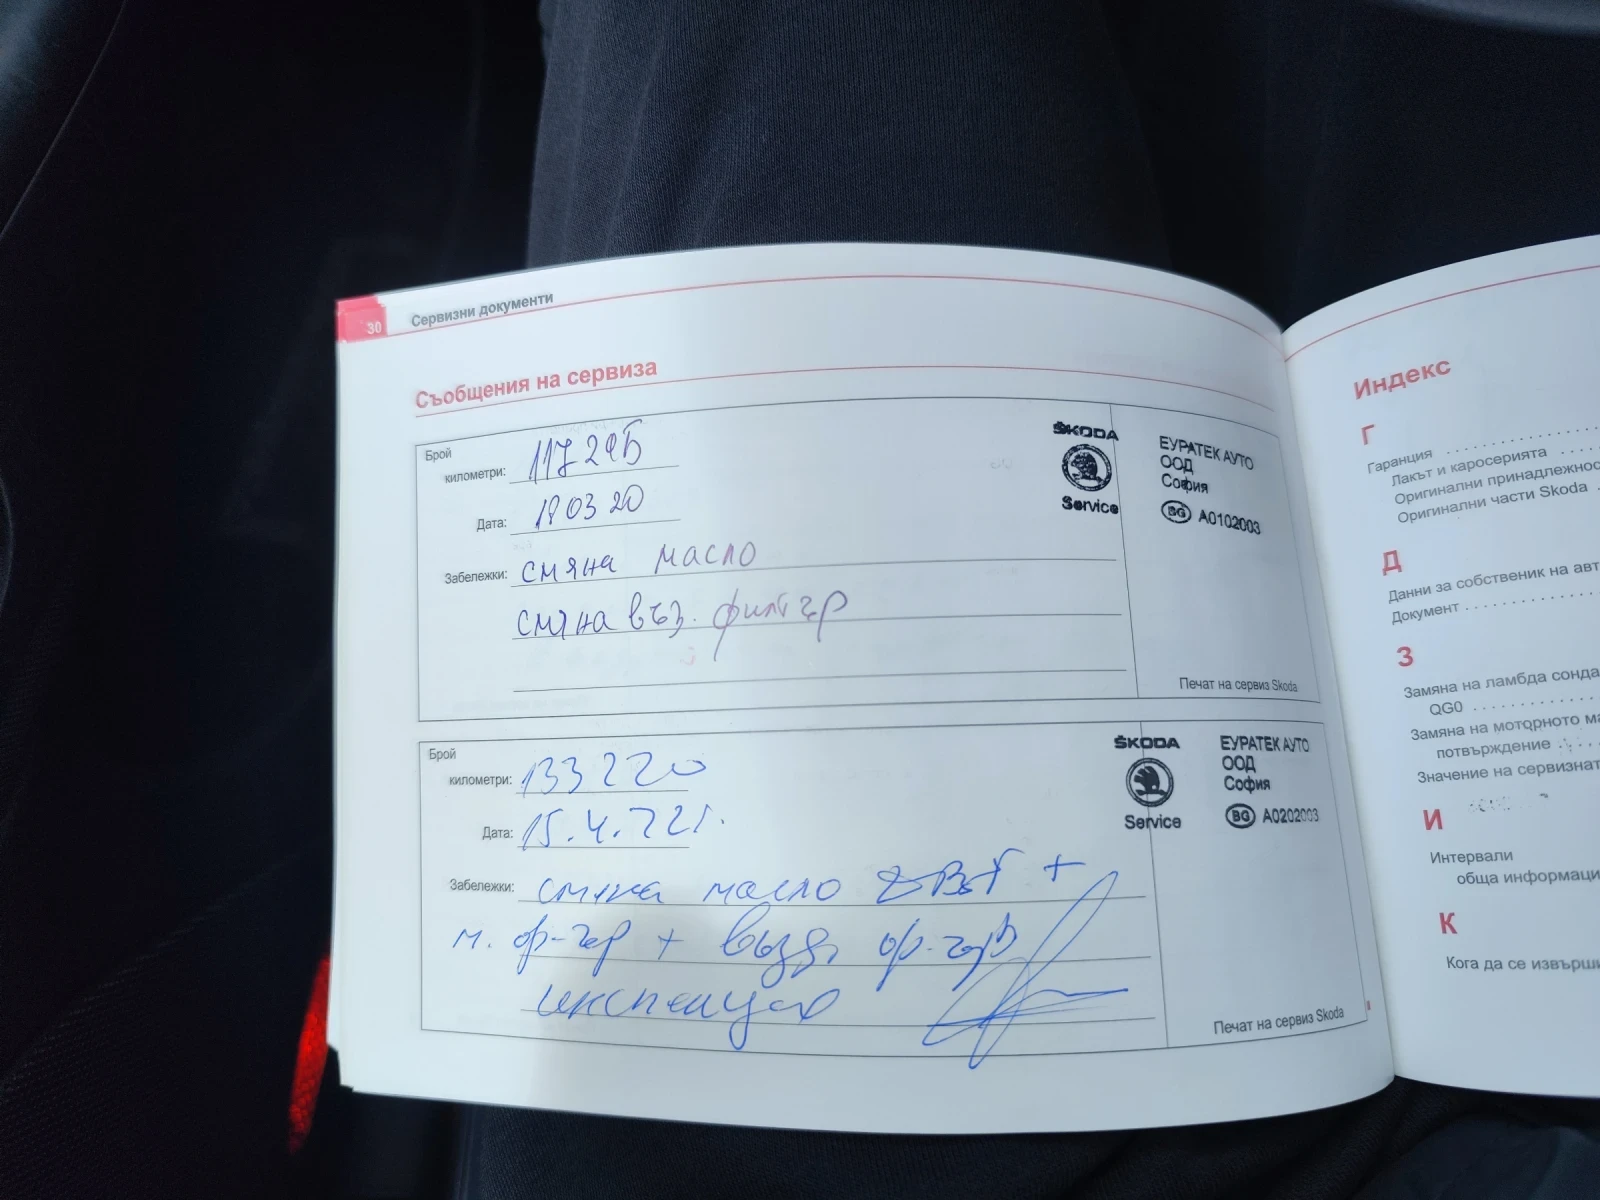 30 Сервизни документи
Съобщения на сервиза
Брой
километри: 117296
Дата: 18 03 20
Забележки: смяна масло
смяна въз. филтър
ŠKODA
Service
ЕУРАТЕК АУТО
ООД
София
BG A0102003
Печат на сервиз Skoda
Брой
километри: 133220
Дата: 15.4.22г.
Забележки: смяна масло +
м. ф-тър + възд. ф-тър
инспекция
ŠKODA
Service
ЕУРАТЕК АУТО
ООД
София
BG A0202003
Печат на сервиз Skoda
Индекс
Г
Гаранция
Лакът и каросерията
Оригинални принадлежнос
Оригинални части Skoda
Д
Данни за собственик на авт
Документ
З
Замяна на ламбда сонда
QG0
Замяна на моторното ма
потвърждение
Значение на сервизнат
И
Интервали
обща информаци
К
Кога да се извърши